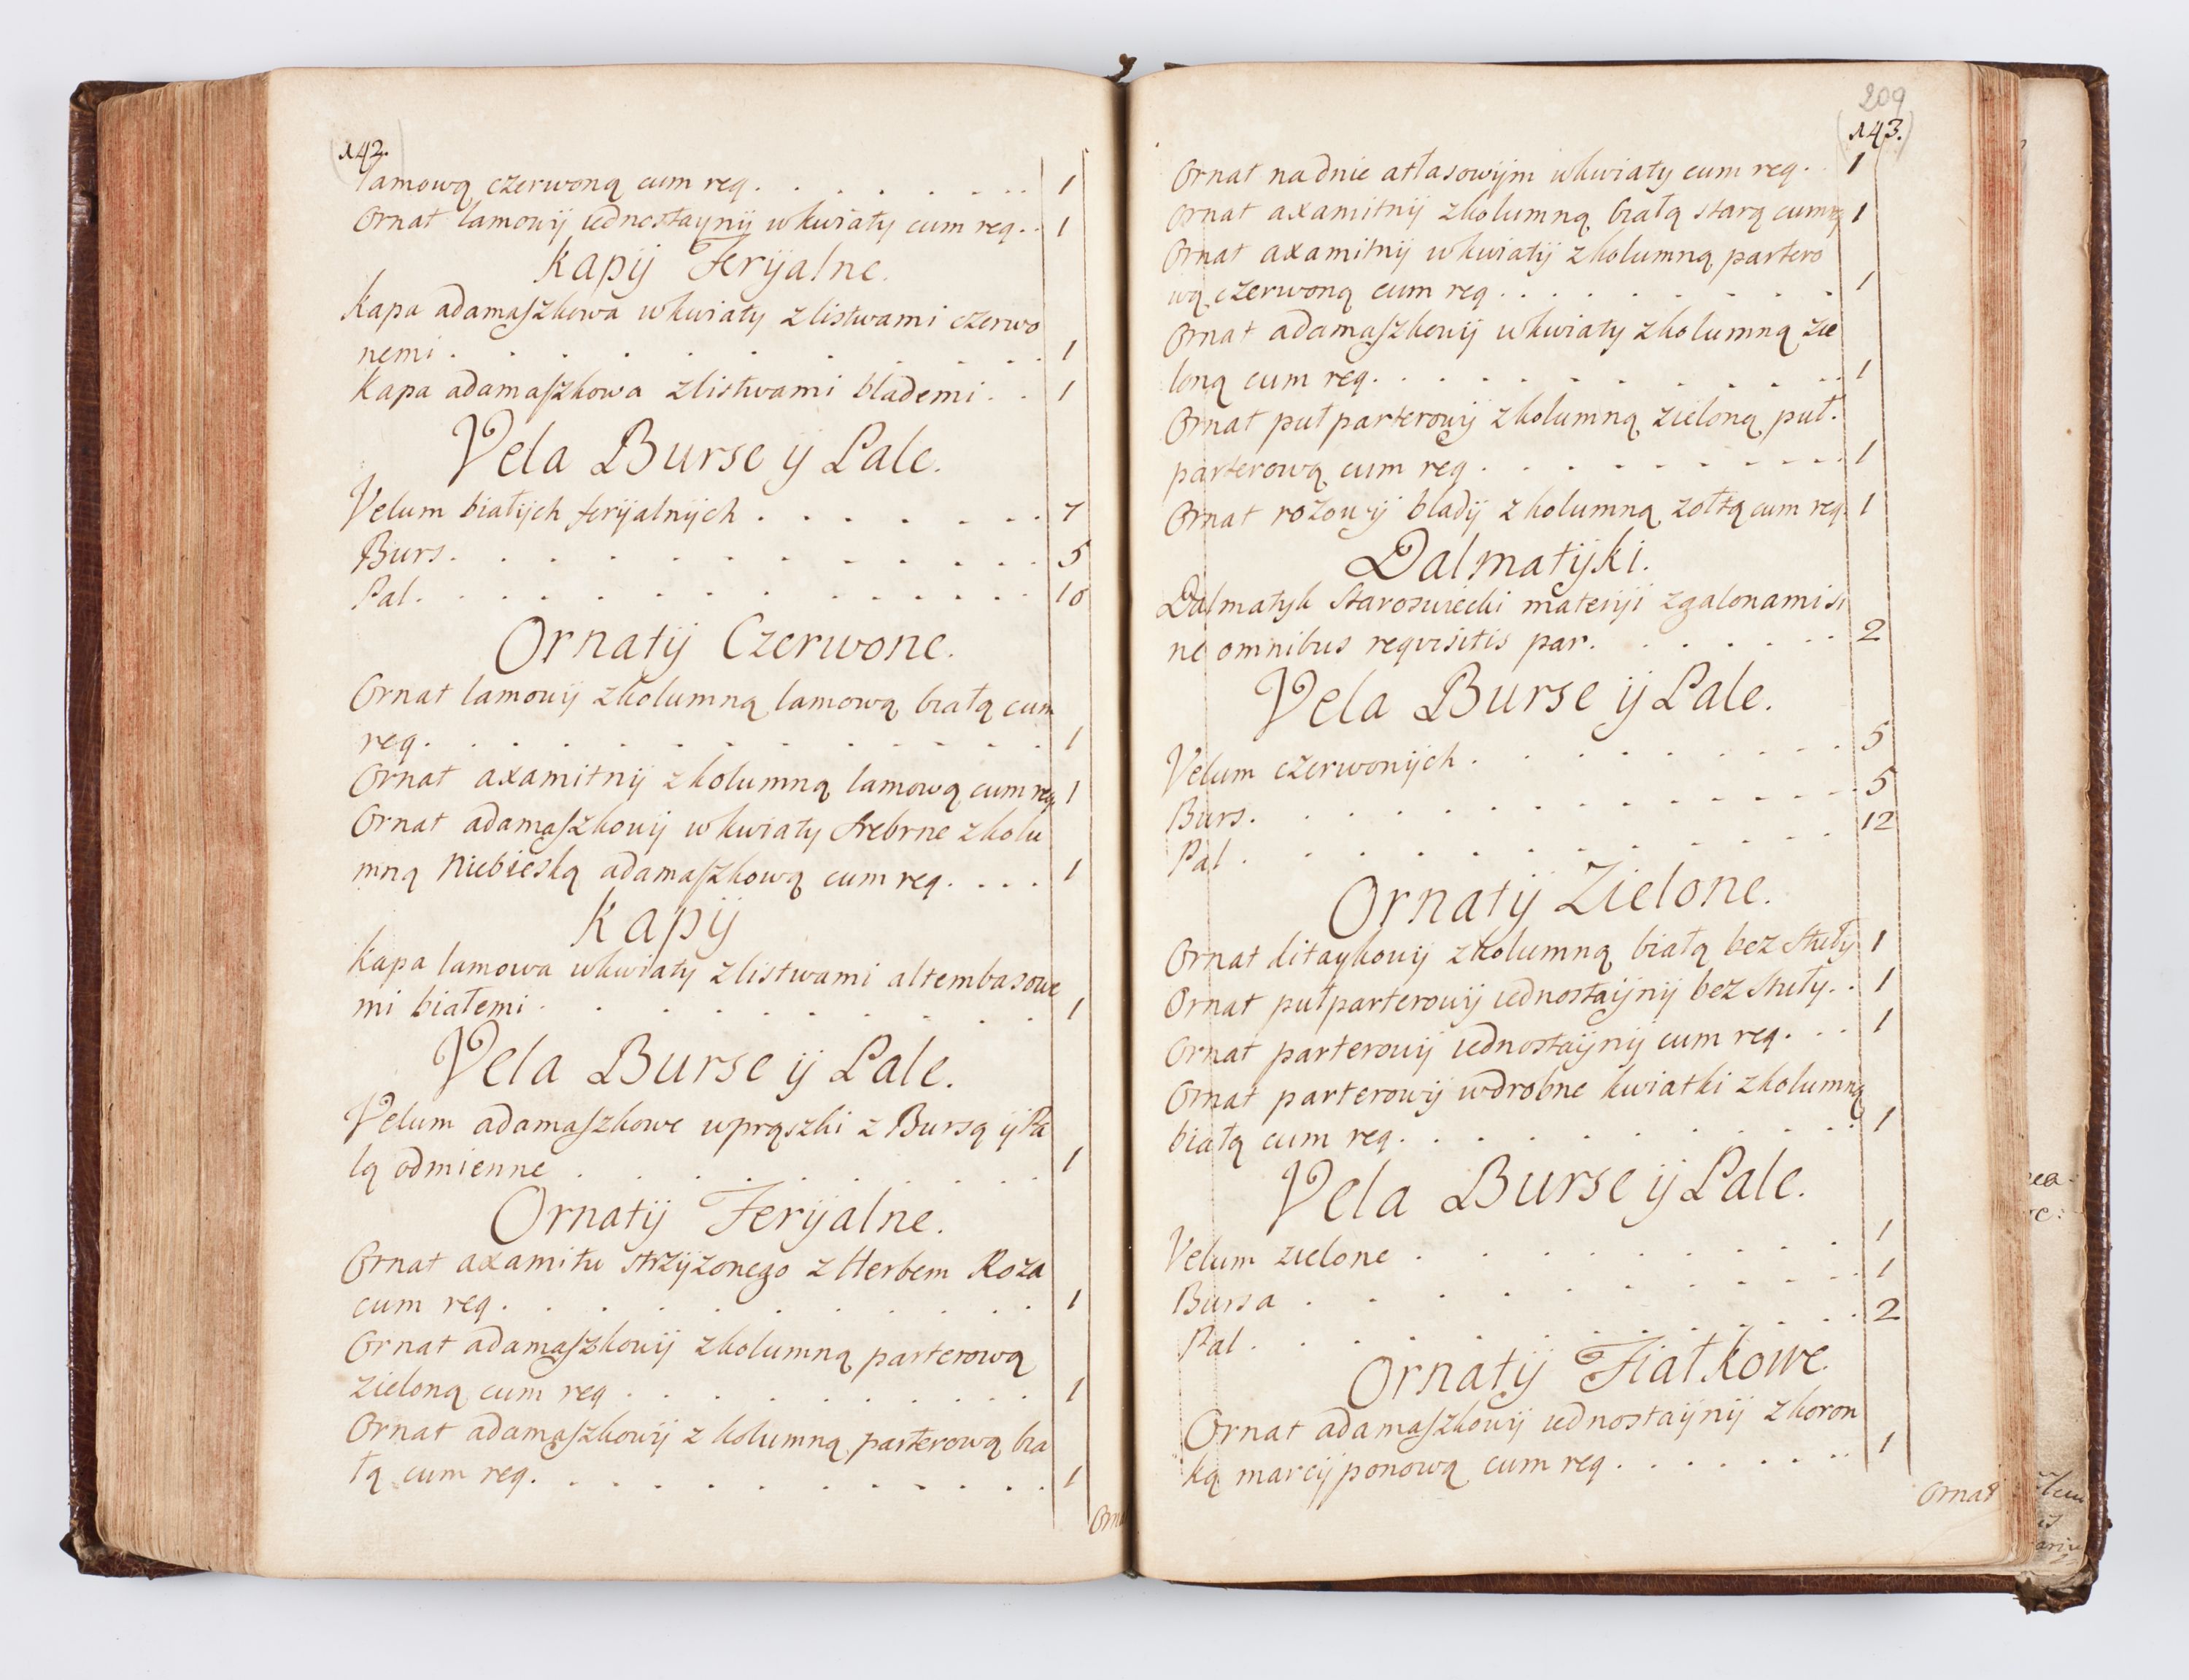 142.
lamową czerwoną cum req. . . . . . . . . 1
Ornat lamowÿ iednostaynÿ w kwiaty cum req. . 1
Kapÿ Ferÿalne.
Kapa adamaſzkowa w kwiaty z listwami czerwo
nemi . . . . . . . . . . . . 1
Kapa adamaſzkowa z listwami blademi . . 1
Vela Burse ÿ Pale.
Velum białÿch ferÿalnÿch . . . . . . . 7
Burs . . . . . . . . . . . . 5
Pal . . . . . . . . . . . . 10
Ornatÿ Czerwone.
Ornat lamowÿ z kolumną lamową białą cum
req. . . . . . . . . . . . . 1
Ornat axamitnÿ z kolumną lamową cum req 1
Ornat adamaſzkowÿ w kwiaty srebrne z kolu
mną Niebieską adamaſzkową cum req. . . . 1
Kapÿ
Kapa lamowa w kwiaty z listwami altembasowe
mi białemi . . . . . . . . . . 1
Vela Burse ÿ Pale.
Velum adamaſzkowe w prąszki z Bursą ÿ Pa
lą odmienne . . . . . . . . . 1
Ornatÿ Ferÿalne.
Ornat axamitu strzÿzonego z Herbem Roza
cum req. . . . . . . . . . . 1
Ornat adamaſzkowÿ z kolumną parterową
zieloną cum req . . . . . . . . 1
Ornat adamaſzkowÿ z kolumną parterową bia
łą cum req. . . . . . . . . . . 1
209
143.
Ornat na dnie atłasowÿm w kwiaty cum req. . 1
Ornat axamitnÿ z kolumną białą starą cum req 1
Ornat axamitnÿ w kwiatÿ z kolumną partero
wą czerwoną cum req . . . . . . . . . 1
Ornat adamaſzkowÿ w kwiaty z kolumną zie
loną cum req. . . . . . . . . . . 1
Ornat puł parterowÿ z kolumną zieloną puł.
parterową cum req . . . . . . . . . 1
Ornat rozowÿ bladÿ z kolumną zołtą cum req 1
Dalmatÿki.
Dalmatyk staroswiecki materÿi z galonami si
ne omnibus requisitis par. . . . . . . 2
Vela Burse ÿ Pale.
Velum czerwonÿch . . . . . . . . 5
Burs. . . . . . . . . . . . . 5
Pal . . . . . . . . . . . . 12
Ornatÿ Zielone.
Ornat ditaykowÿ z kolumną białą bez stuły 1
Ornat puł parterowÿ iednostaÿnÿ bez stuły. . 1
Ornat parterowÿ iednostaÿnÿ cum req. . . . 1
Ornat parterowÿ w drobne kwiatki z kolumną
białą cum req. . . . . . . . . . . 1
Vela Burse ÿ Pale.
Velum zielone . . . . . . . . . 1
Bursa . . . . . . . . . . . 1
Pal . . . . . . . . . . . . 2
Ornatÿ Fiałkowe.
Ornat adamaſzkowÿ iednostaÿnÿ z koron
ką marcÿponową cum req . . . . . . . 1
Ornat